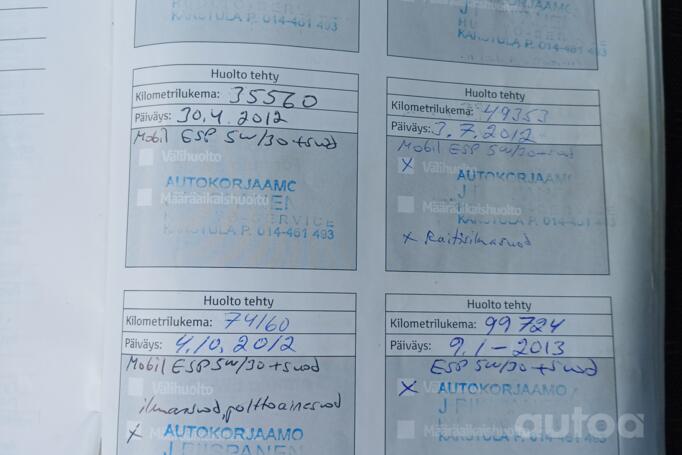 KARSTULA P. 014-461 493
KARSTULA P. 014-461 493
Huolto tehty
Kilometrilukema: 35560
Päiväys: 30.4.2012
Mobil ESP 5W/30 + suod
Välihuolto
AUTOKORJAAMO
Määräaikaishuolto
KARSTULA P. 014-461 493
Huolto tehty
Kilometrilukema: 49353
Päiväys: 3.7.2012
Mobil ESP 5W/30 + suod
x Välihuolto
AUTOKORJAAMO
Määräaikaishuolto
KARSTULA P. 014-461 493
x Raitisilmasuod
Huolto tehty
Kilometrilukema: 74160
Päiväys: 4.10.2012
Mobil ESP 5W/30 + suod
Välihuolto
ilmansuod, polttoainesuod
x AUTOKORJAAMO
Huolto tehty
Kilometrilukema: 99724
Päiväys: 9.1-2013
ESP 5W/30 + suod
x AUTOKORJAAMO
KARSTULA P. 014-461 493
autoa